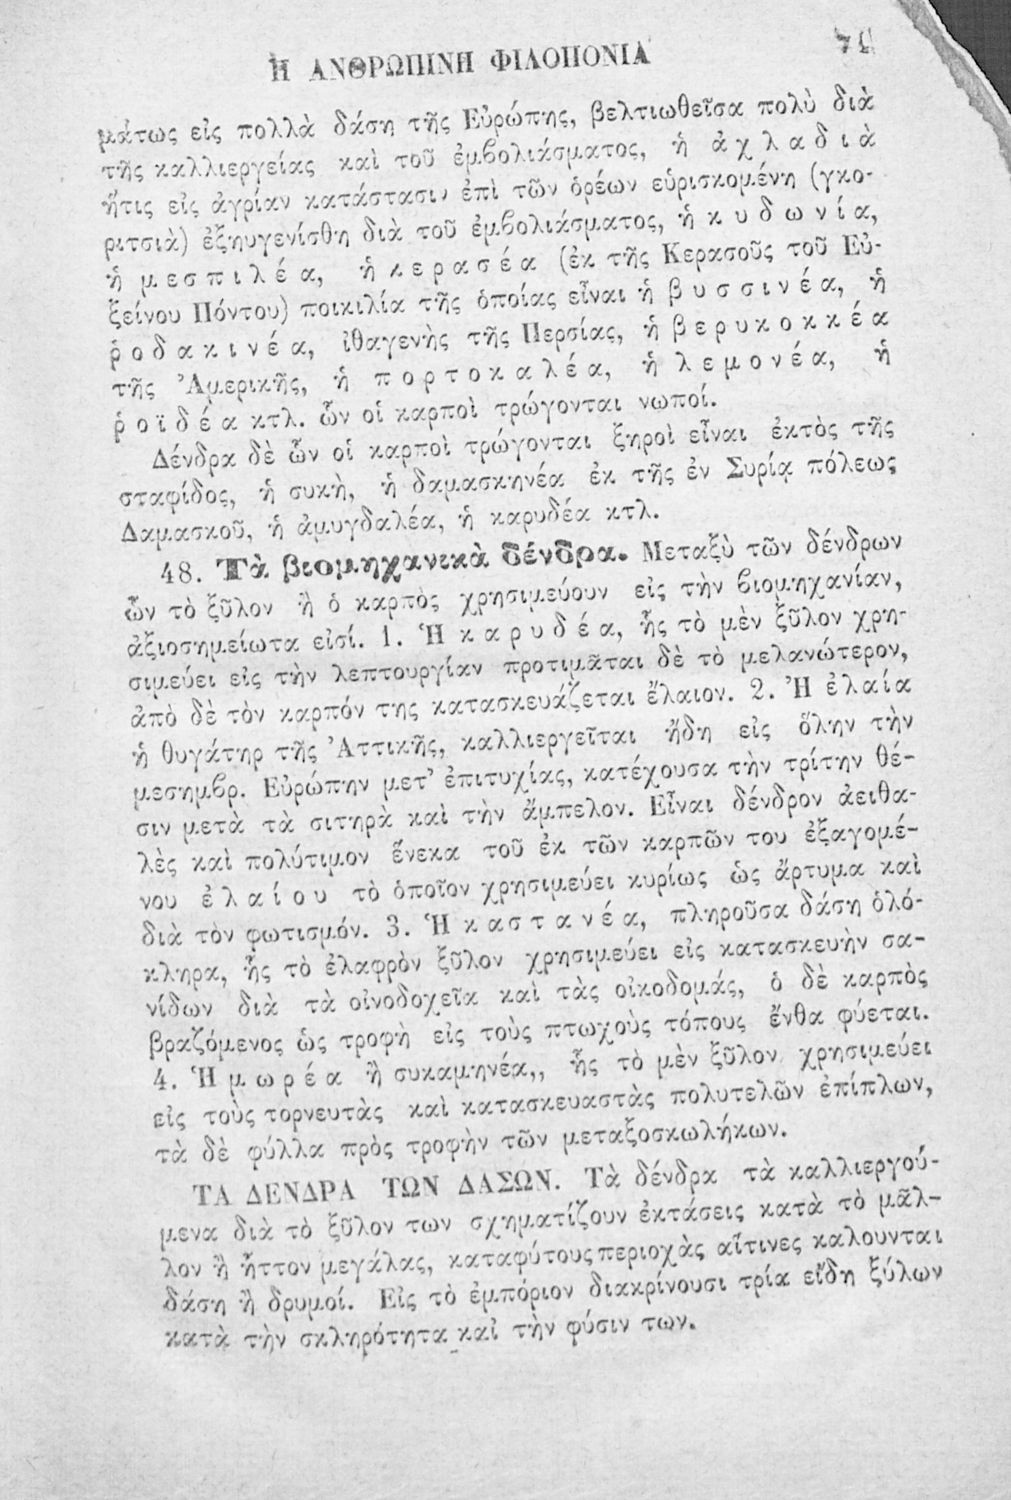 Η ΑΝΘΡΩΠΙΝΗ ΦΙΛΟΠΟΝΙΑ
μάτως εἰς πολλὰ δάση τῆς Εὐρώπης, βελτιωθεῖσα πολὺ διὰ
τῆς καλλιεργείας καὶ τοῦ ἐμβολιάσματος, ἡ ἀχλαδιὰ
ἥτις εἰς ἀγρίαν κατάστασιν ἐπὶ τῶν ὀρέων εὑρισκομένη (γκο-
ριτσιὰ) ἐξηυγενίσθη διὰ τοῦ ἐμβολιάσματος, ἡ κυδωνία,
ἡ μεσπιλέα, ἡ κερασέα (ἐκ τῆς Κερασοῦς τοῦ Εὐ-
ξείνου Πόντου) ποικιλία τῆς ὁποίας εἶναι ἡ βυσσινέα, ἡ
ῥοδακινέα, ἰθαγενὴς τῆς Περσίας, ἡ βερυκοκκέα
τῆς Ἀμερικῆς, ἡ πορτοκαλέα, ἡ λεμονέα, ἡ
ῥοϊδέα κτλ. ὧν οἱ καρποὶ τρώγονται νωποί.
Δένδρα δὲ ὧν οἱ καρποὶ τρώγονται ξηροὶ εἶναι ἐκτὸς τῆς
σταφίδος, ἡ συκὴ, ἡ δαμασκηνέα ἐκ τῆς ἐν Συρίᾳ πόλεως
Δαμασκοῦ, ἡ ἀμυγδαλέα, ἡ καρυδέα κτλ.
48. Τὰ βιομηχανικὰ δένδρα. Μεταξὺ τῶν δένδρων
ὧν τὸ ξῦλον ἢ ὁ καρπὸς χρησιμεύουν εἰς τὴν βιομηχανίαν,
ἀξιοσημείωτα εἰσί. 1. Ἡ καρυδέα, ἧς τὸ μὲν ξῦλον χρη-
σιμεύει εἰς τὴν λεπτουργίαν προτιμᾶται δὲ τὸ μελανώτερον,
ἀπὸ δὲ τὸν καρπόν της κατασκευάζεται ἔλαιον. 2. Ἡ ἐλαία
ἡ θυγάτηρ τῆς Ἀττικῆς, καλλιεργεῖται ἤδη εἰς ὅλην τὴν
μεσημβρ. Εὐρώπην μετ’ ἐπιτυχίας, κατέχουσα τὴν τρίτην θέ-
σιν μετὰ τὰ σιτηρὰ καὶ τὴν ἄμπελον. Εἶναι δένδρον ἀειθα-
λὲς καὶ πολύτιμον ἕνεκα τοῦ ἐκ τῶν καρπῶν του ἐξαγομέ-
νου ἐλαίου τὸ ὁποῖον χρησιμεύει κυρίως ὡς ἄρτυμα καὶ
διὰ τὸν φωτισμόν. 3. Ἡ καστανέα, πληροῦσα δάση ὁλό-
κληρα, ἧς τὸ ἐλαφρὸν ξῦλον χρησιμεύει εἰς κατασκευὴν σα-
νίδων διὰ τὰ οἰνοδοχεῖα καὶ τὰς οἰκοδομάς, ὁ δὲ καρπὸς
βραζόμενος ὡς τροφὴ εἰς τοὺς πτωχοὺς τόπους ἔνθα φύεται.
4. Ἡ μωρέα ἢ συκαμηνέα,, ἧς τὸ μὲν ξῦλον χρησιμεύει
εἰς τοὺς τορνευτὰς καὶ κατασκευαστὰς πολυτελῶν ἐπίπλων,
τὰ δὲ φύλλα πρὸς τροφὴν τῶν μεταξοσκωλήκων.
ΤΑ ΔΕΝΔΡΑ ΤΩΝ ΔΑΣΩΝ. Τὰ δένδρα τὰ καλλιεργού-
μενα διὰ τὸ ξῦλον των σχηματίζουν ἐκτάσεις κατὰ τὸ μᾶλ-
λον ἢ ἧττον μεγάλας, καταφύτους περιοχὰς αἵτινες καλουνται
δάση ἢ δρυμοί. Εἰς τὸ ἐμπόριον διακρίνουσι τρία εἴδη ξύλων
κατὰ τὴν σκληρότητα καὶ τὴν φύσιν των.